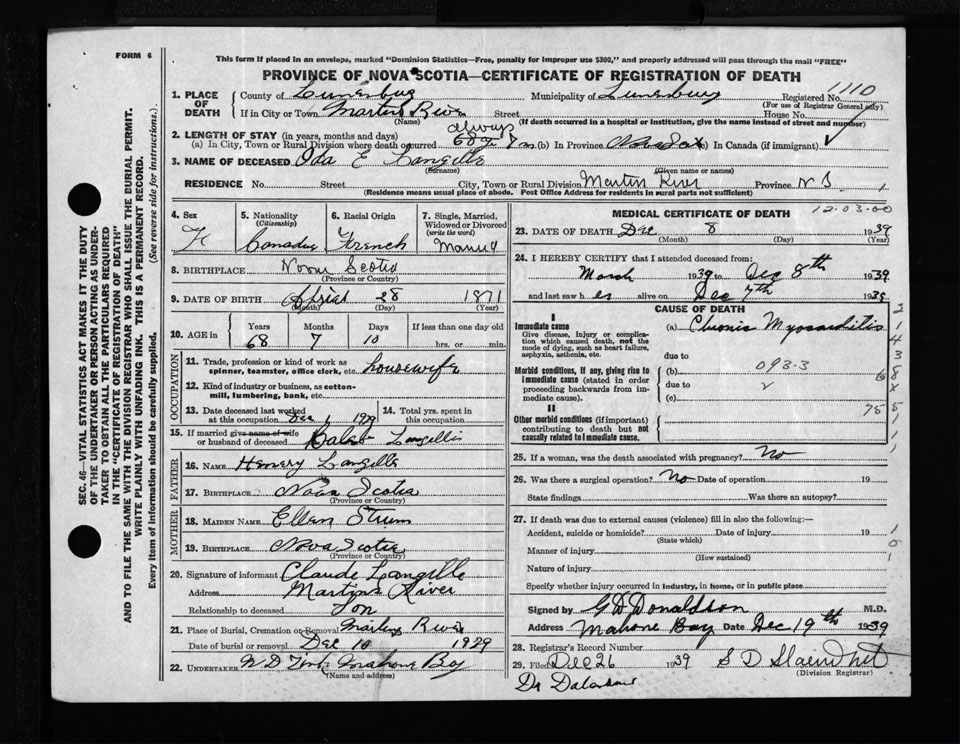 FORM 6
This form if placed in an envelope, marked "Dominion Statistics—Free, penalty for improper use $300," and properly addressed will pass through the mail "FREE"
PROVINCE OF NOVA SCOTIA—CERTIFICATE OF REGISTRATION OF DEATH
1110
1. PLACE OF DEATH
County of Lunenburg Municipality of Lunenburg Registered No.
(For use of Registrar General only)
If in City or Town Martins River Street House No.
(Name) (If death occurred in a hospital or institution, give the name instead of street and number)
always
2. LENGTH OF STAY (in years, months and days)
(a) In City, Town or Rural Division where death occurred 68 y 7 m (b) In Province Nova Sco (c) In Canada (if immigrant)
3. NAME OF DECEASED Ida E Langille
(Surname) (Given name or names)
RESIDENCE No. Street City, Town or Rural Division Martins River Province N S
(Residence means usual place of abode. Post Office Address for residents in rural parts not sufficient)
4. Sex
Fe
5. Nationality (Citizenship)
Canadian
6. Racial Origin
French
7. Single, Married, Widowed or Divorced (write the word)
Married
8. BIRTHPLACE Nova Scotia
(Province or Country)
9. DATE OF BIRTH April 28 1871
(Month) (Day) (Year)
10. AGE in
Years Months Days If less than one day old
68 7 10 hrs. or min.
OCCUPATION
11. Trade, profession or kind of work as spinner, teamster, office clerk, etc. housewife
12. Kind of industry or business, as cotton-mill, lumbering, bank, etc.
13. Date deceased last worked at this occupation Dec 1 1939
14. Total yrs. spent in this occupation
15. If married give name of wife or husband of deceased Caleb Langille
FATHER
16. NAME Henery Langille
17. BIRTHPLACE Nova Scotia
(Province or Country)
MOTHER
18. MAIDEN NAME Ellen Strum
19. BIRTHPLACE Nova Scotia
(Province or Country)
20. Signature of informant Claude Langille
Address Martins River
Relationship to deceased Son
21. Place of Burial, Cremation or Removal Martins River
Date of burial or removal Dec 10 1939
22. UNDERTAKER Mahone Bay
(Name and address)
MEDICAL CERTIFICATE OF DEATH
12-03-00
23. DATE OF DEATH Dec 8 1939
(Month) (Day) (Year)
24. I HEREBY CERTIFY that I attended deceased from
March 1939 to Dec 8th 1939
and last saw h er alive on Dec 7th 1939
CAUSE OF DEATH
I
Immediate cause
Give disease, injury or complication which caused death, not the mode of dying, such as heart failure, asphyxia, asthenia, etc.
(a) Chronic Myocarditis
due to
Morbid conditions, if any, giving rise to immediate cause (stated in order proceeding backwards from immediate cause).
(b) 093-3
due to
(c)
II
Other morbid conditions (if important) contributing to death but not causally related to immediate cause.
25. If a woman, was the death associated with pregnancy? No
26. Was there a surgical operation? No Date of operation 19
State findings Was there an autopsy?
27. If death was due to external causes (violence) fill in also the following:—
Accident, suicide or homicide? Date of injury 19
(State which)
Manner of injury
(How sustained)
Nature of injury
Specify whether injury occurred in industry, in home, or in public place
Signed by G D Donaldson M.D.
Address Mahone Bay Date Dec 19th 1939
28. Registrar's Record Number
29. Filed Dec 26 1939
(Division Registrar)
SEC. 46—VITAL STATISTICS ACT MAKES IT THE DUTY OF THE UNDERTAKER OR PERSON ACTING AS UNDERTAKER TO OBTAIN ALL THE PARTICULARS REQUIRED IN THE "CERTIFICATE OF REGISTRATION OF DEATH" AND TO FILE THE SAME WITH THE DIVISION REGISTRAR WHO SHALL ISSUE THE BURIAL PERMIT.
WRITE PLAINLY WITH UNFADING INK. THIS IS A PERMANENT RECORD.
Every item of information should be carefully supplied. (See reverse side for instructions).